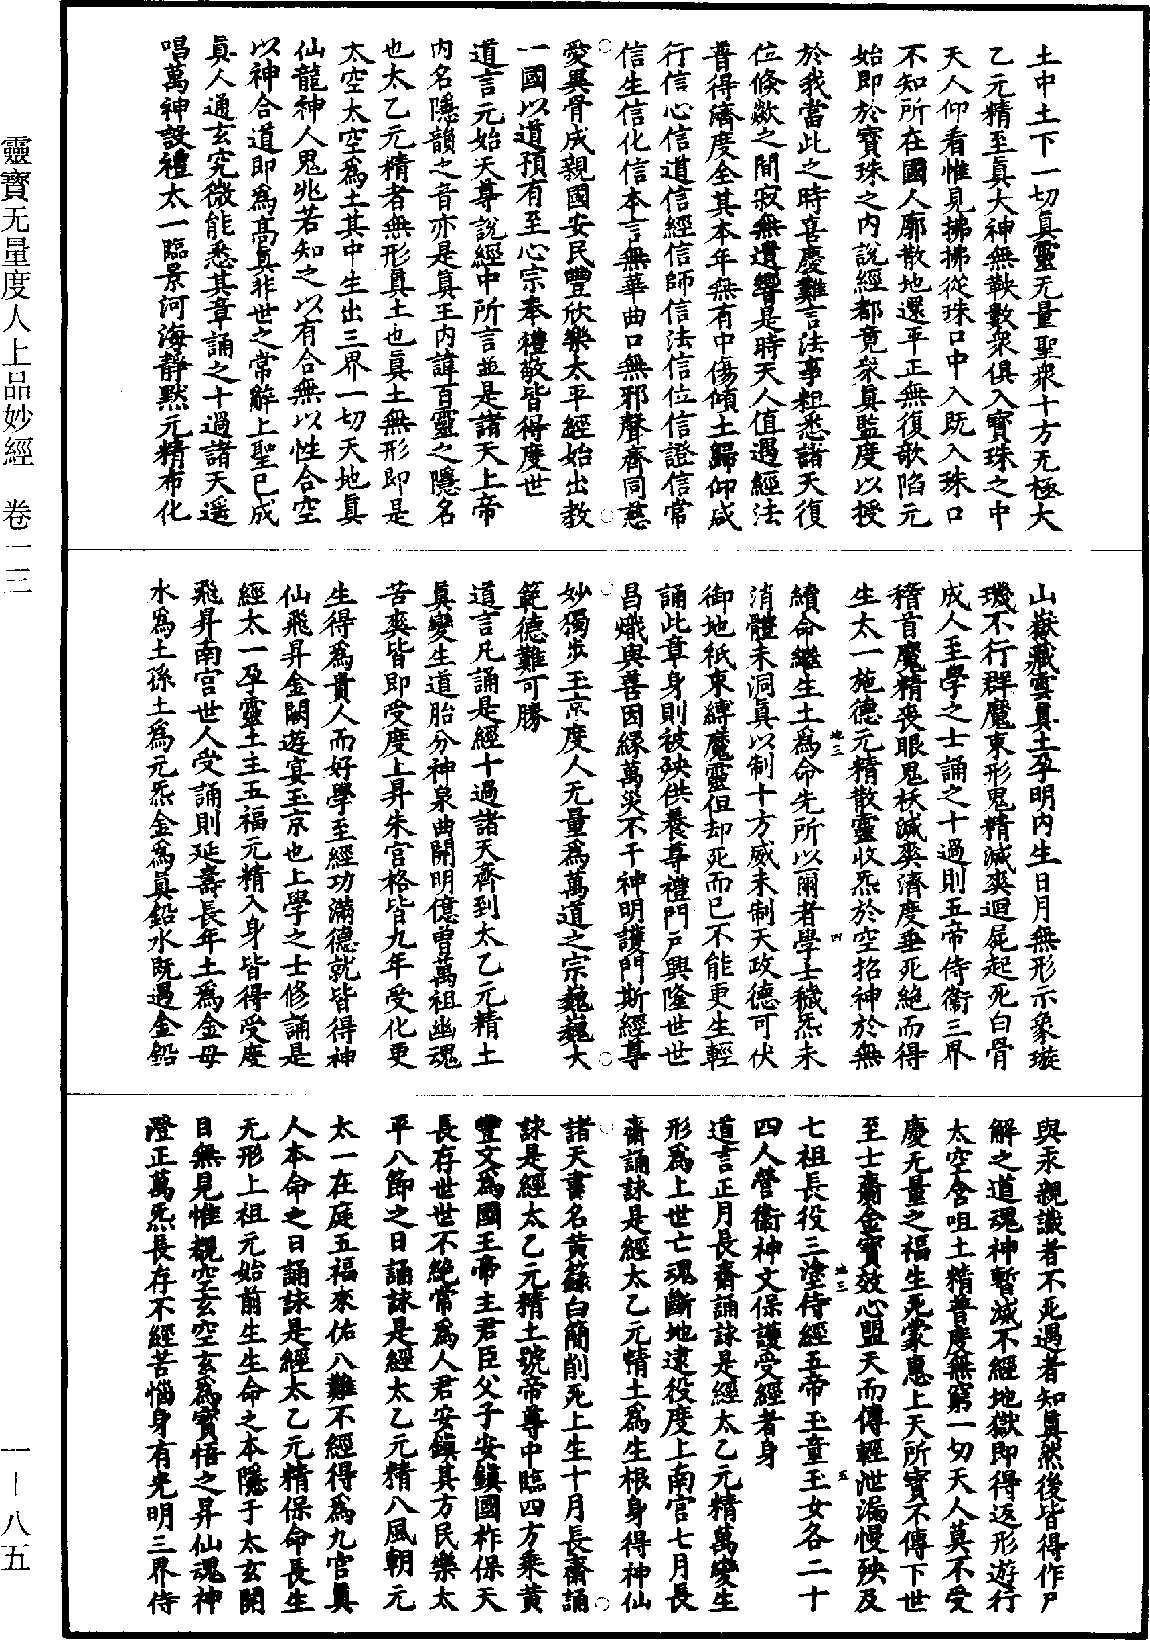 土中土下一切真靈无量聖衆十方无極大
乙元精至真大神無鞅數衆俱入寳珠之中
天人仰看惟見拂拂從珠口中入既入珠口
不知所在國人廓散地還平正無復欹陷元
始即於寳珠之内說經都竟衆真監度以授
於我當此之時喜慶難言法事粗悉諸天復
位倏歘之間寂無遺響是時天人值遇經法
普得濟度全其本年無有中傷傾土歸仰咸
行信心信道信經信師信法信位信證信常
信生信化信本言無華曲口無邪聲齊同慈
愛異骨成親國安民豐欣樂太平經始出教
一國以道預有至心宗奉禮敬皆得度世
道言元始天尊說經中所言並是諸天上帝
内名隱韻之音亦是真王内諱百靈之隱名
也太乙元精者無形真土也真土無形即是
太空太空為土其中生出三界一切天地真
仙龍神人鬼兆若知之以有合無以性合空
以神合道即為高真非世之常解上聖已成
真人通玄究微能悉其章誦之十過諸天遥
唱萬神設禮太一臨景河海靜默元精布化
山嶽藏雲真土孕明内生日月無形示象璇
璣不行群魔束形鬼精滅爽迴屍起死白骨
成人至學之士誦之十過則五帝侍衛三界
稽首魔精喪眼鬼袄滅爽濟度垂死絶而得
生太一施德元精散靈收炁於空招神於無
地三 四
續命繼生土為命先所以爾者學士穢炁未
消體未洞真以制十方威未制天政德可伏
御地祇束縛魔靈但却死而已不能更生輕
誦此章身則被殃供養尊禮門戶興隆世世
昌熾與善因緣萬災不干神明護門斯經尊
妙獨步玉京度人无量為萬道之宗巍巍大
範德難可勝
道言凡誦是經十過諸天齊到太乙元精土
真變生道胎分神泉曲開明億曽萬祖幽魂
苦爽皆即受度上昇朱宫格皆九年受化更
生得為貴人而好學至經功滿德就皆得神
仙飛昇金闕遊宴玉京也上學之士修誦是
經太一孕靈土主五福元精入身皆得受度
飛昇南宫世人受誦則延壽長年土為金母
水為土孫土為元炁金為真鉛水既遇金鉛
與汞親識者不死遇者知真然後皆得作尸
解之道魂神暫滅不經地獄即得返形遊行
太空含咀土精普度無窮一切天人莫不受
慶无量之福生死蒙惠上天所寳不傳下世
至士齎金寳效心盟天而傳輕泄漏慢殃及
地三 五
七祖長役三塗侍經五帝玉童玉女各二十
四人營衛神文保護受經者身
道言正月長齋誦詠是經太乙元精萬變生
形為上世亡魂斷地逮役度上南宫七月長
齋誦詠是經太乙元精土為生根身得神仙
諸天書名黄籙白簡削死上生十月長齋誦
詠是經太乙元精土號帝尊中臨四方乘黄
豐文為國王帝主君臣父子安鎮國祚保天
長存世世不絶常為人君安鎮其方民樂太
平八節之日誦詠是經太乙元精八風朝元
太一在庭五福來佑八難不經得為九宫真
人本命之日誦詠是經太乙元精保命長生
无形上祖元始前生生命之本隱于太玄開
目無見惟覩空玄空玄為寳悟之昇仙魂神
澄正萬炁長存不經苦惱身有光明三界侍
靈寶无量度人上品妙經 卷一三
一—八五